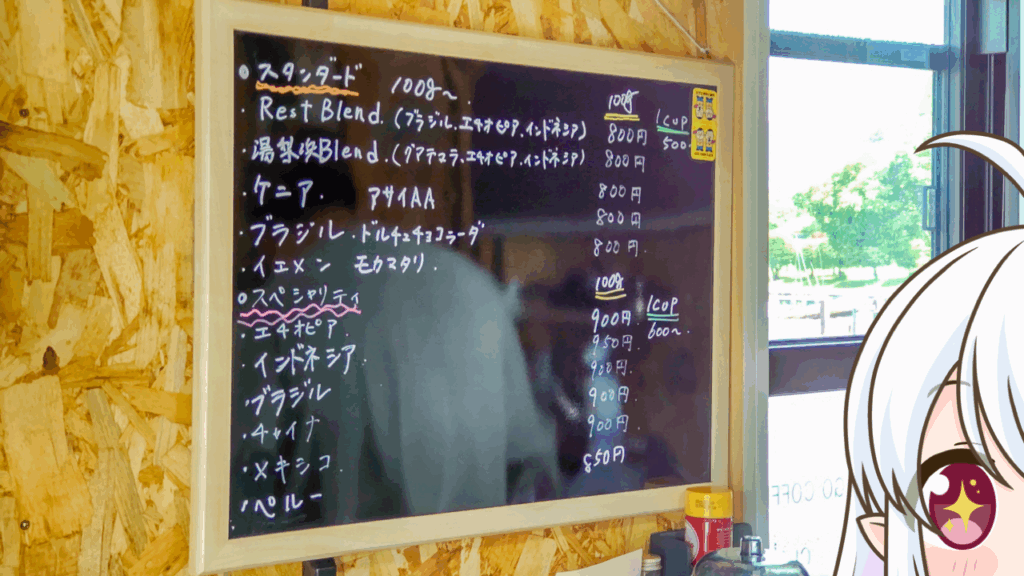 スタンダード 100g〜. 100g
・Rest Blend.(ブラジル.エチオピア.インドネシア) 800円 1cup
・湯梨浜Blend.(グアテマラ.エチオピア.インドネシア) 800円 500.
・ケニア. アサイAA 800円
・ブラジル・ドルチェチョコラーダ 800円
・イエメン モカマタリ. 800円.
スペシャリティ 100g
・エチオピア. 900円. 1cup
・インドネシア. 950円. 600〜.
・ブラジル 900円.
・チャイナ 900円.
・メキシコ. 900円.
・ペルー 850円
GO COFF